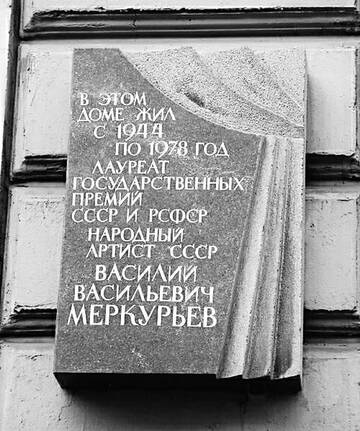 В ЭТОМ
ДОМЕ ЖИЛ
С 1944
ПО 1978 ГОД
ЛАУРЕАТ
ГОСУДАРСТВЕННЫХ
ПРЕМИЙ
СССР И РСФСР
НАРОДНЫЙ
АРТИСТ СССР
ВАСИЛИЙ
ВАСИЛЬЕВИЧ
МЕРКУРЬЕВ